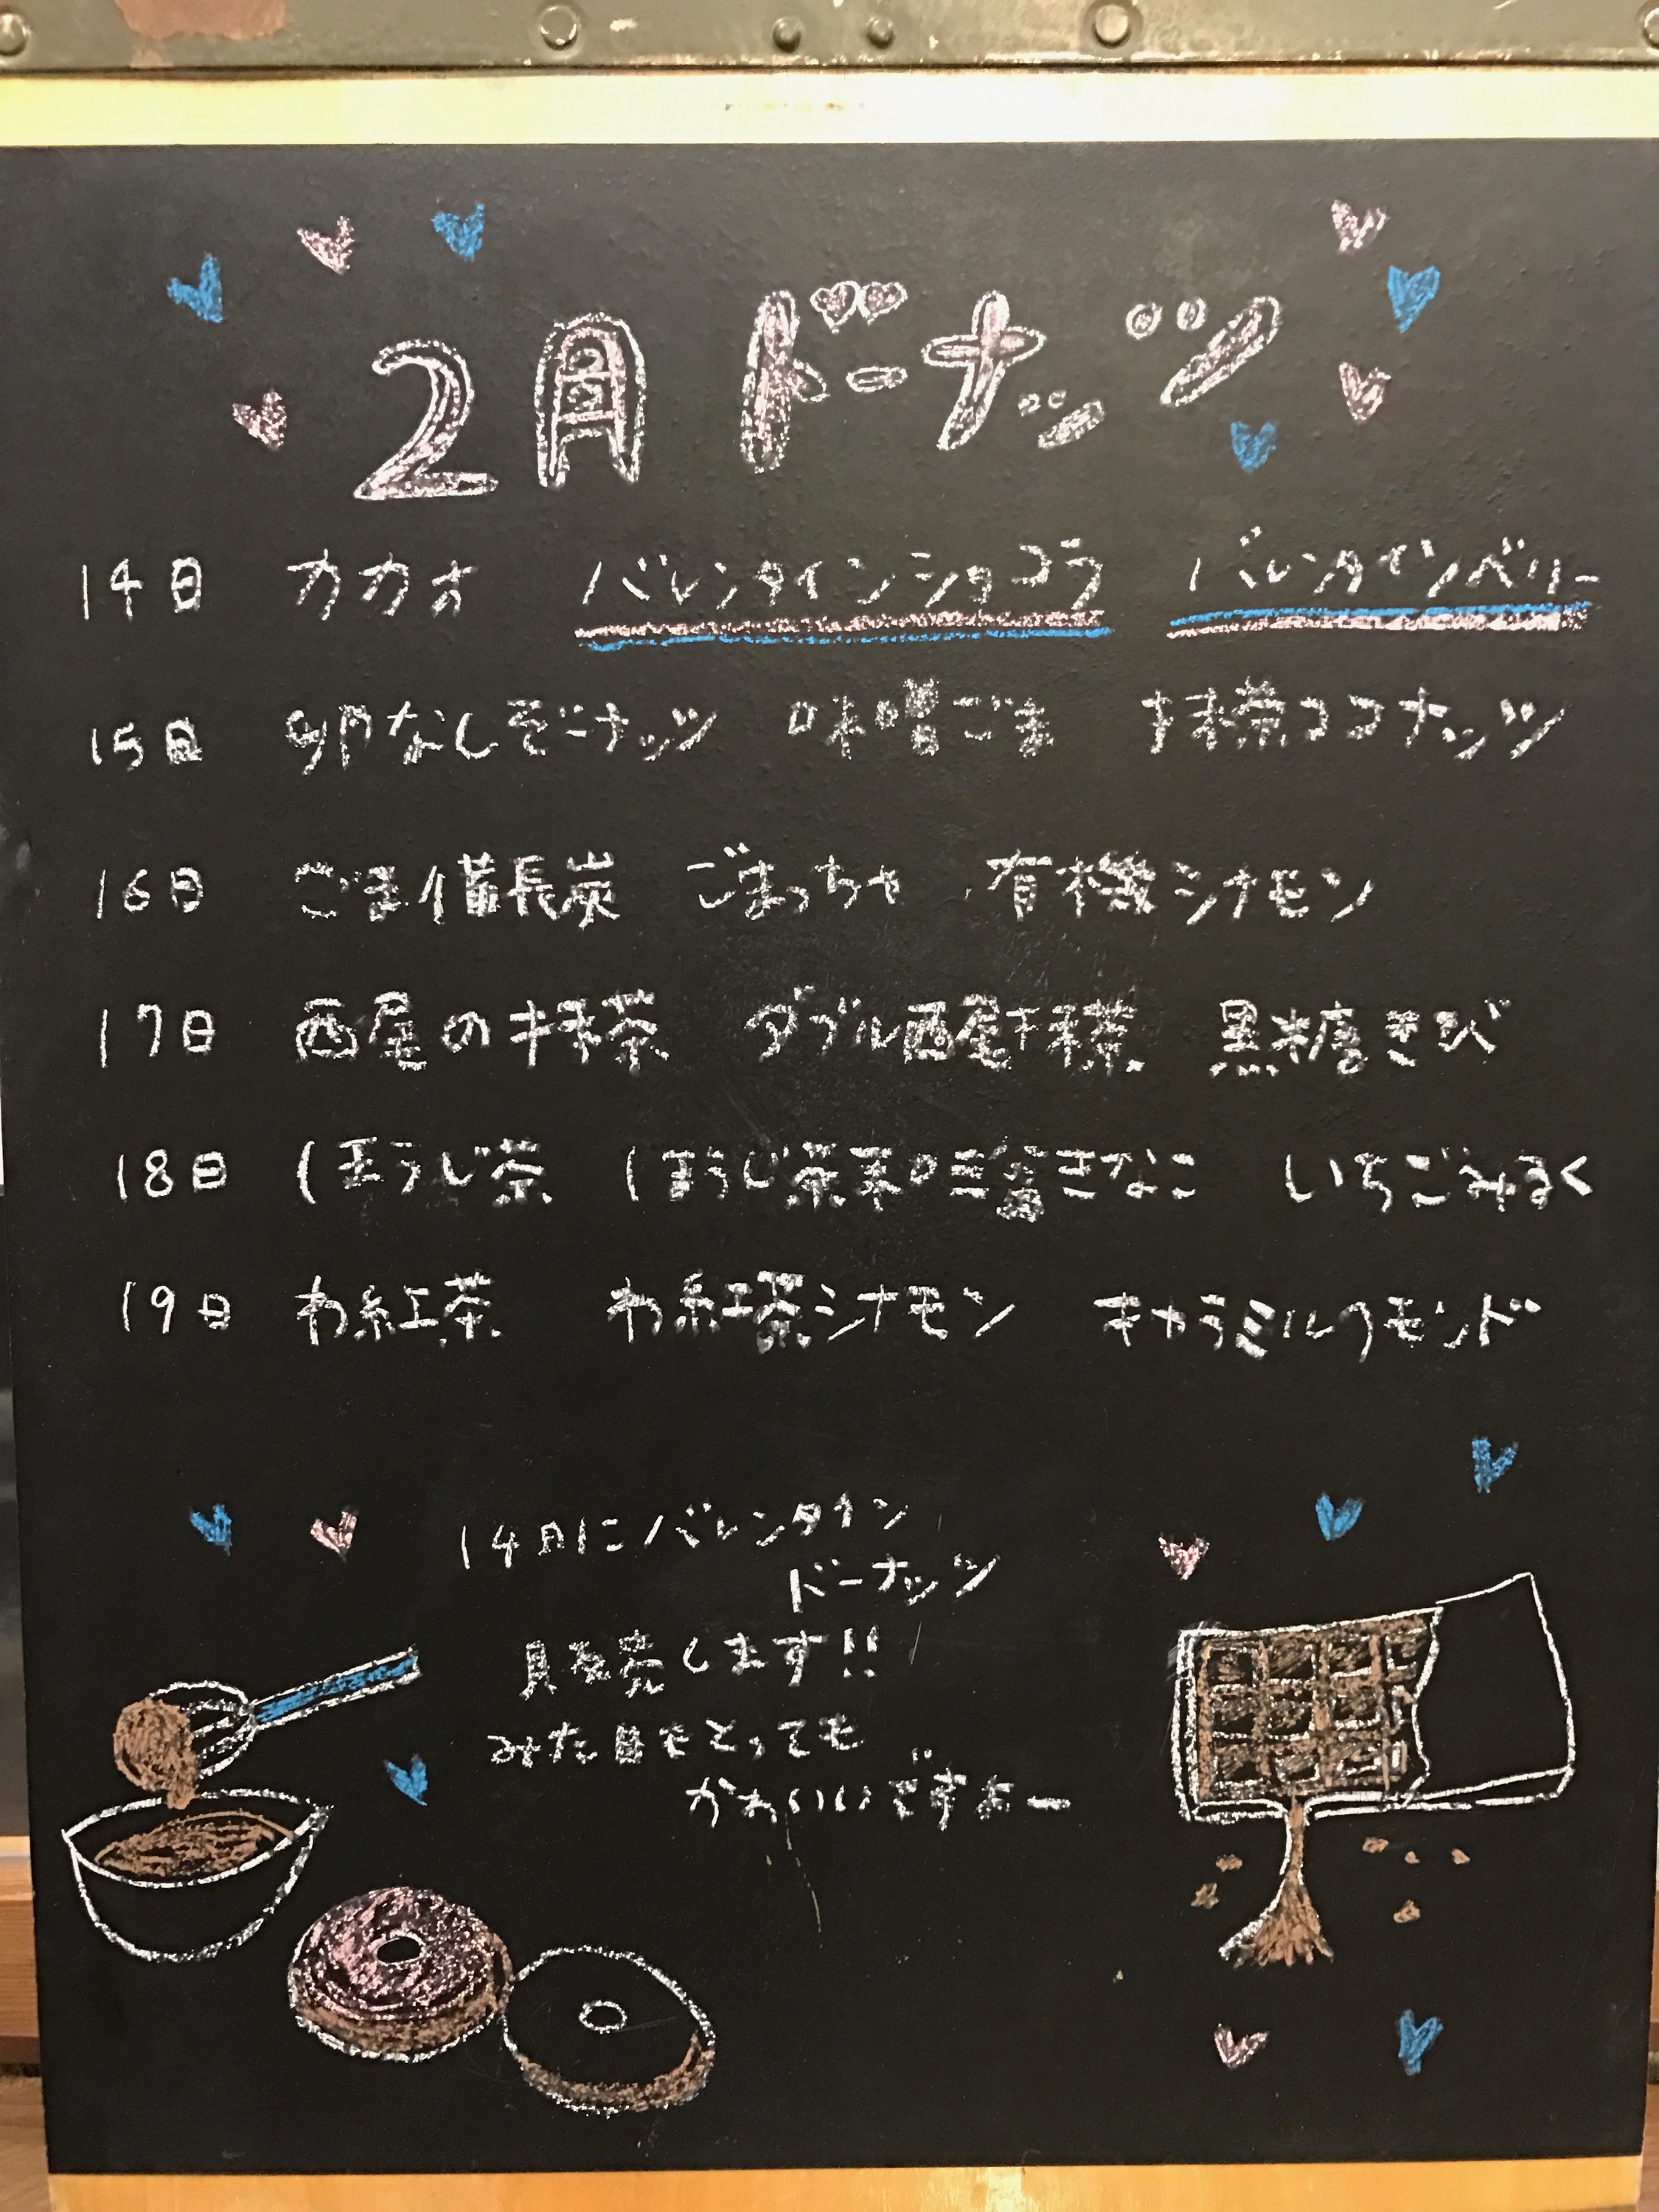 2月 ドーナッツ
14日 カカオ バレンタインショコラ バレンタインベリー
15日 卵なしぞーナッツ 味噌ごま 抹茶ココナッツ
16日 ごま備長炭 ごまっちゃ 有機シナモン
17日 西尾の抹茶 ダブル西尾抹茶 黒糖きび
18日 ほうじ茶 ほうじ茶和三盆きなこ いちごみるく
19日 わ紅茶 わ紅茶シナモン キャラミルクモンド
14日にバレンタイン
ドーナッツ
販売します!!
みた目もとっても
かわいいですよー